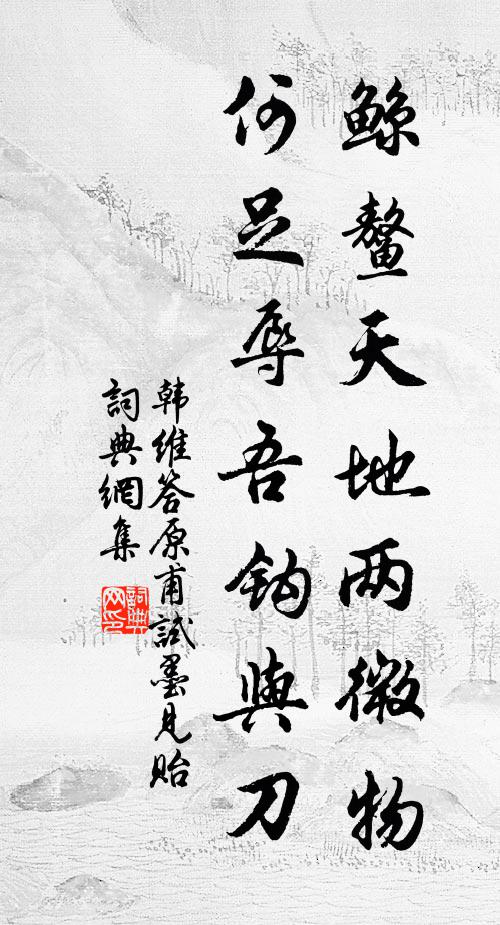 鲸鳌天地两微物
何足辱吾钩與刀
韩维答原甫試墨見貽
詞典網集
詞典网印